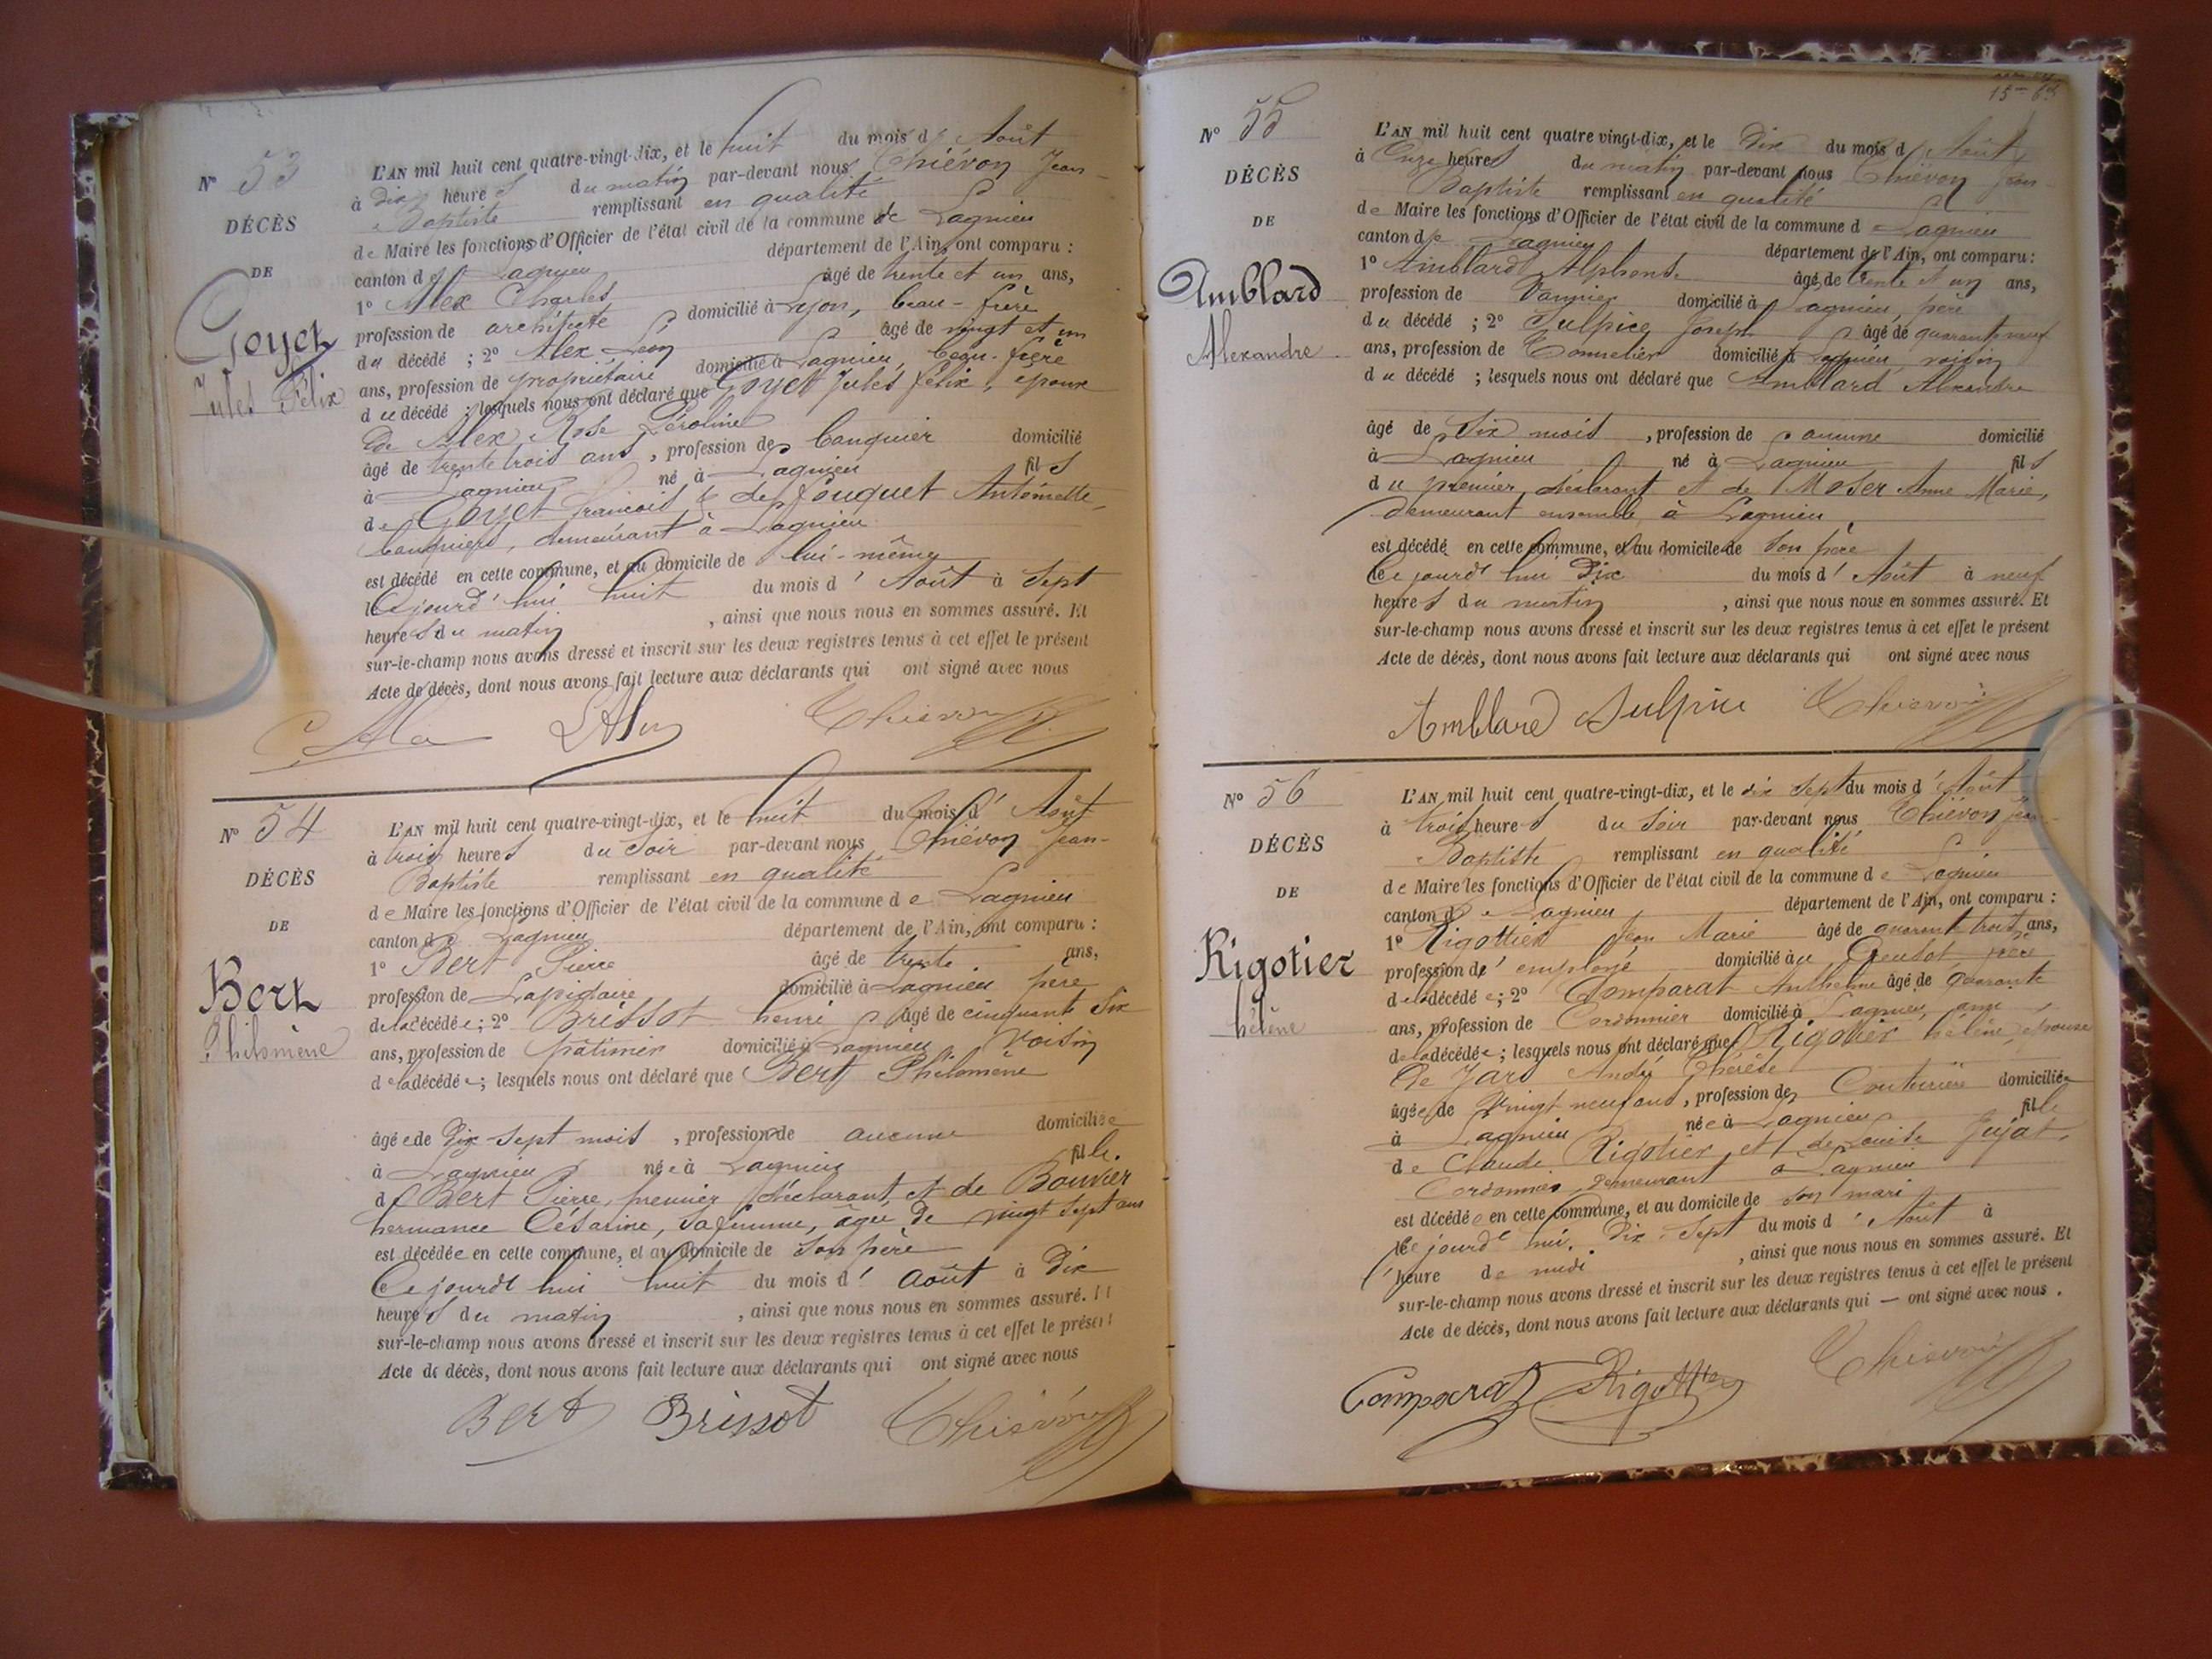 N° 53
DÉCÈS
DE
Goyet
Jules Félix
L'AN mil huit cent quatre-vingt-dix, et le huit du mois d' Août
à dix heures du matin par-devant nous Thiévon Jean-
Baptiste remplissant en qualité
de Maire les fonctions d'Officier de l'état civil de la commune de Lagnieu
canton de Lagnieu département de l'Ain, ont comparu :
1° Alex Charles âgé de trente et un ans,
profession de architecte domicilié à Lyon, beau-frère
du décédé ; 2° Alex Léon âgé de vingt et un
ans, profession de propriétaire domicilié à Lagnieu, beau-frère
du décédé ; lesquels nous ont déclaré que Goyet Jules félix, époux
de Alex Rose
âgé de trente trois ans, profession de banquier domicilié
à Lagnieu né à Lagnieu fils
de Goyet françois & de fouquet Antoinette,
banquiers, demeurant à Lagnieu
est décédé en cette commune, et au domicile de lui-même
le Ce jourd'hui huit du mois d' Août à Sept
heures du matin, ainsi que nous nous en sommes assuré. Et
sur-le-champ nous avons dressé et inscrit sur les deux registres tenus à cet effet le présent
Acte de décès, dont nous avons fait lecture aux déclarants qui ont signé avec nous
Thiévon
N° 54
DÉCÈS
DE
Bert
Philomène
L'AN mil huit cent quatre-vingt-dix, et le huit du mois d' Août
à trois heures du soir par-devant nous Thiévon Jean-
Baptiste remplissant en qualité
de Maire les fonctions d'Officier de l'état civil de la commune de Lagnieu
canton de Lagnieu département de l'Ain, ont comparu :
1° Bert Pierre âgé de trente ans,
profession de Lapidaire domicilié à Lagnieu père
de la décédée ; 2° Brissot henri âgé de cinquante six
ans, profession de domicilié à Lagnieu voisin
de la décédée ; lesquels nous ont déclaré que Bert Philomène
âgée de Dix-sept mois, profession de aucune domiciliée
à Lagnieu née à Lagnieu fille
de Bert Pierre, premier déclarant, et de Bouvier
hermance Césarine, sa femme, âgée de vingt sept ans
est décédée en cette commune, et au domicile de son père
le Ce jourd'hui huit du mois d' août à Dix
heures du matin, ainsi que nous nous en sommes assuré. Et
sur-le-champ nous avons dressé et inscrit sur les deux registres tenus à cet effet le présent
Acte de décès, dont nous avons fait lecture aux déclarants qui ont signé avec nous
Bert Brissot Thiévon
N° 55
DÉCÈS
DE
Amblard
Alexandre
L'AN mil huit cent quatre vingt-dix, et le Dix du mois d' Août
à Onze heures du matin par-devant nous Thiévon Jean-
Baptiste remplissant en qualité
de Maire les fonctions d'Officier de l'état civil de la commune d Lagnieu
canton de Lagnieu département de l'Ain, ont comparu :
1° Amblard Alphonse âgé de trente et un ans,
profession de Vannier domicilié à Lagnieu, père
du décédé ; 2° Sulpice Joseph âgé de quarante neuf
ans, profession de Tonnelier domicilié à Lagnieu, voisin
du décédé ; lesquels nous ont déclaré que Amblard Alexandre
âgé de Six mois, profession de aucune domicilié
à Lagnieu né à Lagnieu fils
du premier déclarant et de Moser Anne Marie,
demeurant ensemble à Lagnieu
est décédé en cette commune, et au domicile de son père
le Ce jourd'hui Dix du mois d' Août à neuf
heures du matin, ainsi que nous nous en sommes assuré. Et
sur-le-champ nous avons dressé et inscrit sur les deux registres tenus à cet effet le présent
Acte de décès, dont nous avons fait lecture aux déclarants qui ont signé avec nous
Amblard Sulpice Thiévon
N° 56
DÉCÈS
DE
Rigotier
hélène
L'AN mil huit cent quatre-vingt-dix, et le dix sept du mois d' Août
à trois heures du soir par-devant nous Thiévon Jean-
Baptiste remplissant en qualité
de Maire les fonctions d'Officier de l'état civil de la commune de Lagnieu
canton de Lagnieu département de l'Ain, ont comparu :
1° Rigottier Jean Marie âgé de quarante trois ans,
profession d' employé domicilié au Creusot
de la décédée ; 2° Comparat Anthelme âgé de quarante
ans, profession de Cordonnier domicilié à Lagnieu, ami
de la décédée ; lesquels nous ont déclaré que Rigotier hélène, épouse
de André
âgée de Vingt neuf ans, profession de Couturière domiciliée
à Lagnieu née à Lagnieu fille
de Claude Rigotier et de Louise Jujat,
Cordonnier, demeurant à Lagnieu
est décédée en cette commune, et au domicile de son mari
le Ce jourd'hui Dix-Sept du mois d' Août à
heure de midi, ainsi que nous nous en sommes assuré. Et
sur-le-champ nous avons dressé et inscrit sur les deux registres tenus à cet effet le présent
Acte de décès, dont nous avons fait lecture aux déclarants qui — ont signé avec nous.
Comparat Rigottier Thiévon